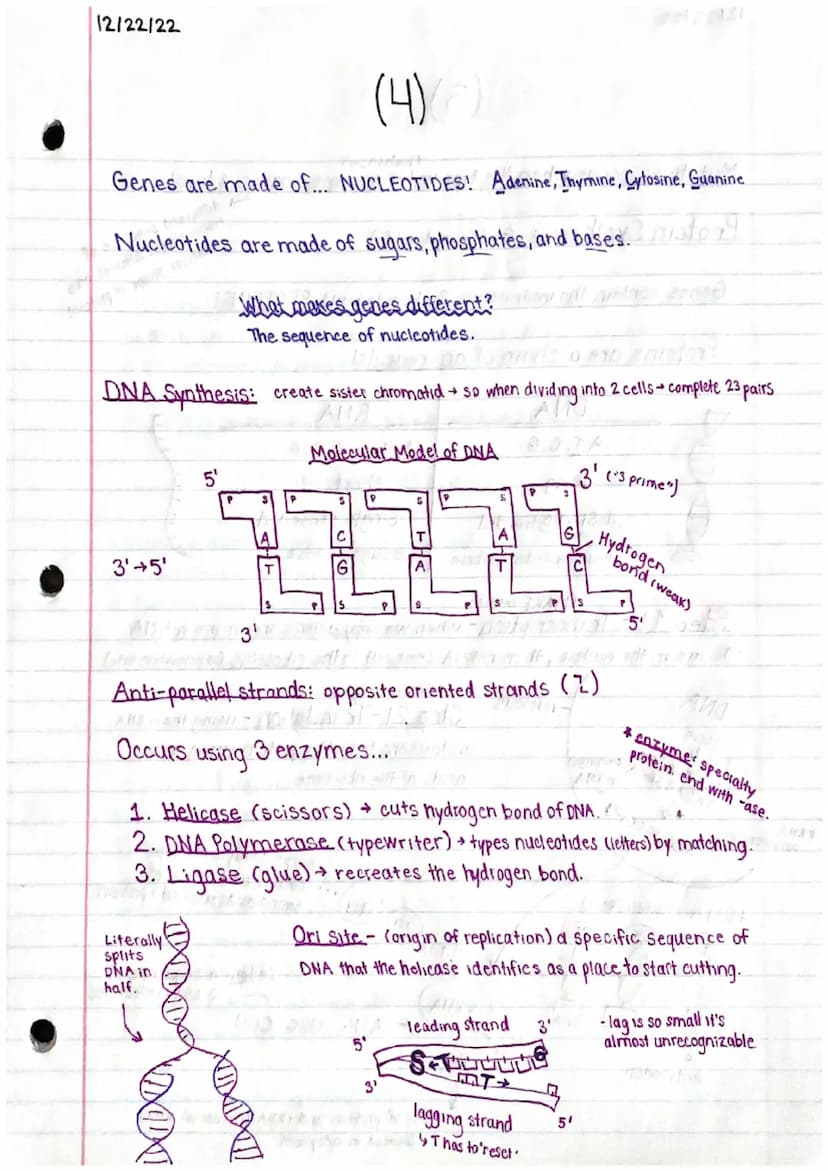 12/22/22
(4)
Genes are made of... NUCLEOTIDES! Adenine, Thymine, Cytosine, Guanine
Nucleotides are made of sugars, phosphates, and bases.
What makes genes different?
The sequence of nucleotides.
DNA Synthesis: create sister chromatid → so when dividing into 2 cells → complete 23 pairs
Molecular Model of DNA
5' 3' ("3 prime")
P S P S P S P S P S
A C T A G
3'→5' T G A T C
Hydrogen bond (weak)
S P S P S P S P S P
3' 5'
Anti-parallel strands: opposite oriented strands (2)
Occurs using 3 enzymes...
* enzyme: specialty
protein. end with -ase.
1. Helicase (scissors) → cuts hydrogen bond of DNA.
2. DNA Polymerase (typewriter) → types nucleotides (letters) by matching.
3. Ligase (glue) → recreates the hydrogen bond.
Literally
splits
DNA in
half.
Ori Site - (origin of replication) a specific sequence of
DNA that the helicase identifies as a place to start cutting.
leading strand 3'
5'
S ← T G
T →
3'
lagging strand 5'
↳ T has to reset.
- lag is so small it's
almost unrecognizable